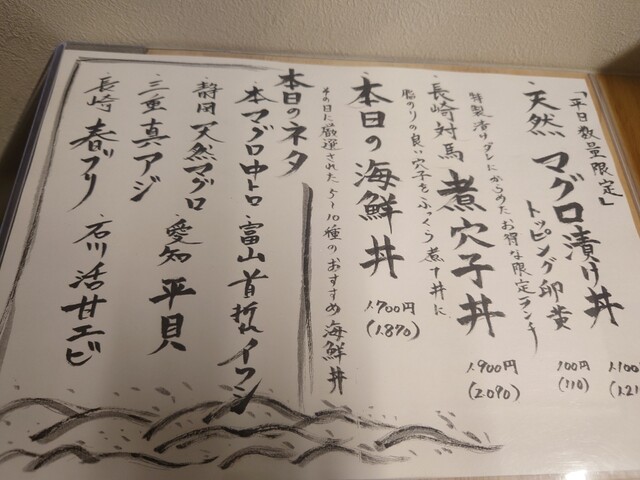 「平日数量限定」
・天然 マグロ漬け丼
1.100
(1.21
トッピング卵黄
100円
(110)
特製漬けダレにからめたお得な限定ランチ
・長崎対馬 煮穴子丼
1.900円
(2.090)
脂のりの良い穴子をふっくら煮て丼に
・本日の海鮮丼
1.700円
(1.870)
その日に厳選された5〜10種のおすすめ海鮮丼
本日のネタ
・本マグロ中トロ
・富山 首折れイワシ
・静岡 天然マグロ
・愛知 平貝
・三重 真アジ
・長崎 春ブリ
・石川 活甘エビ